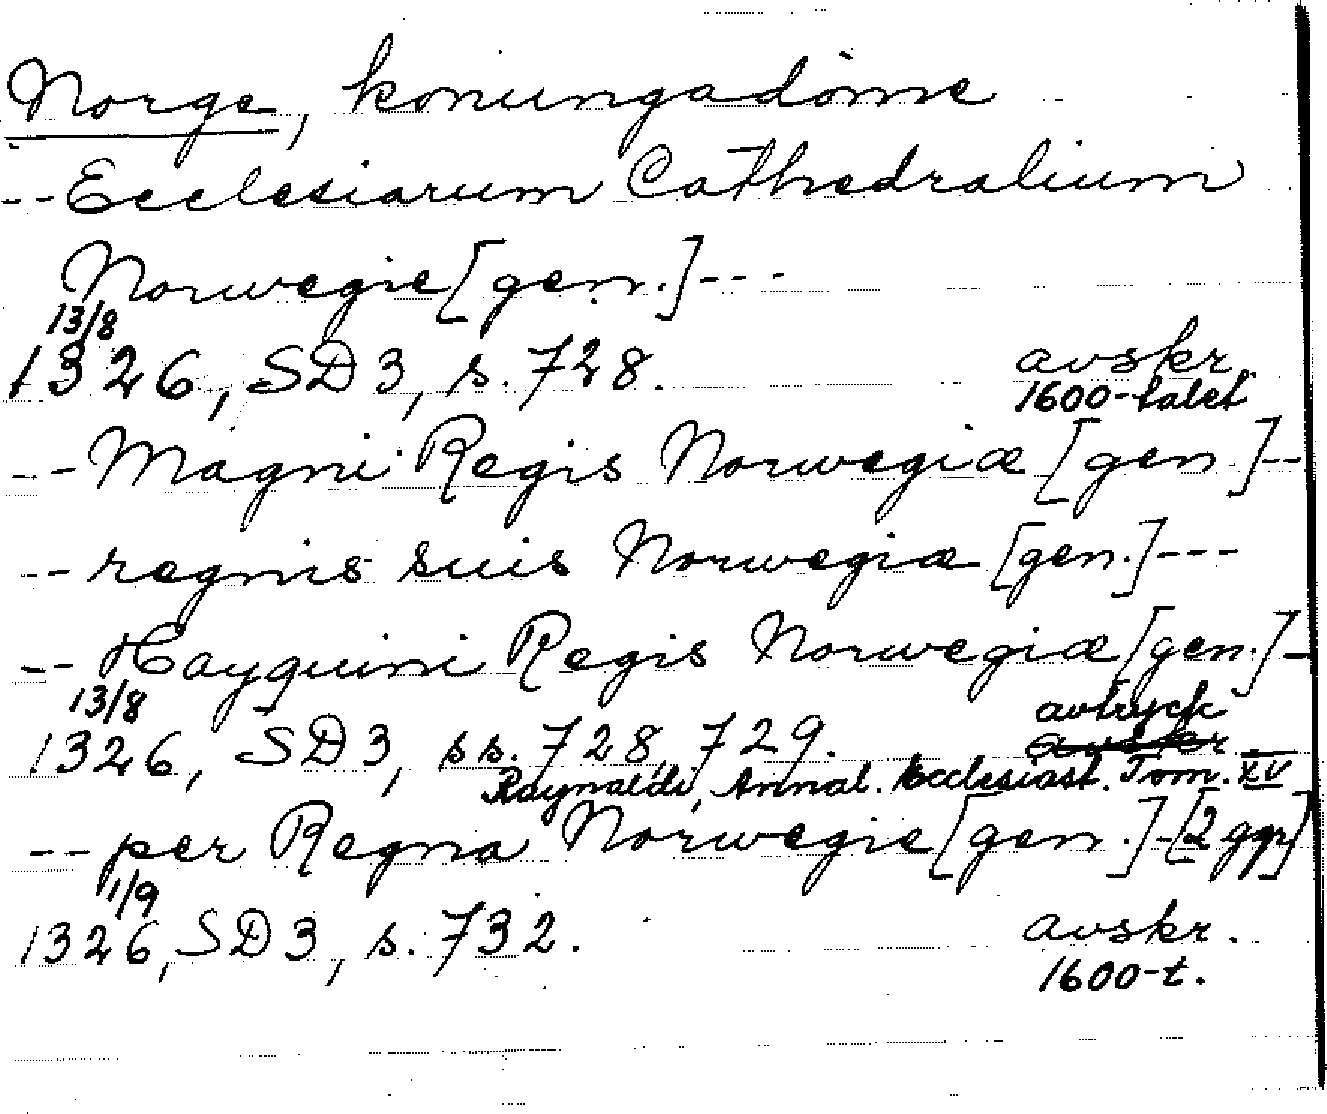 Norge, konungadöme
-- Ecclesiarum Cathedralium
Norwegie [gen.] ---
13/8
1326, SD 3, s. 728. avskr.
1600-talet
-- Magni Regis Norwegiæ [gen.] --
-- regnis suis Norwegiæ [gen.] ---
-- Hayquini Regis Norwegiæ [gen.] -
13/8 avtryck
1326, SD 3, ss. 728, 729. avskr
Raynaldi, Annal. Ecclesiast. Tom. XV
-- per Regna Norwegie [gen.] - [2 ggr]
1/9
1326, SD 3, s. 732. avskr.
1600-t.